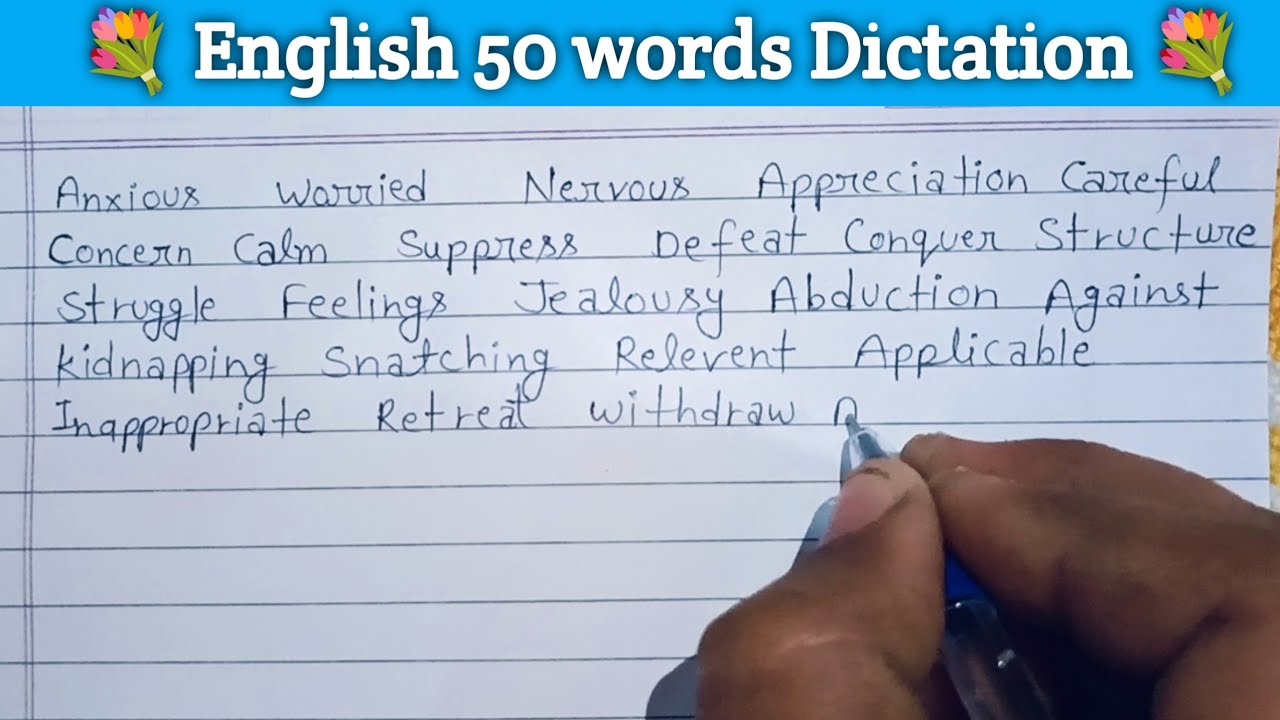 English 50 words Dictation
Anxious Worried Nervous Appreciation Careful
Concern Calm Suppress Defeat Conquer Structure
Struggle Feelings Jealousy Abduction Against
Kidnapping Snatching Relevent Applicable
Inappropriate Retreat Withdraw